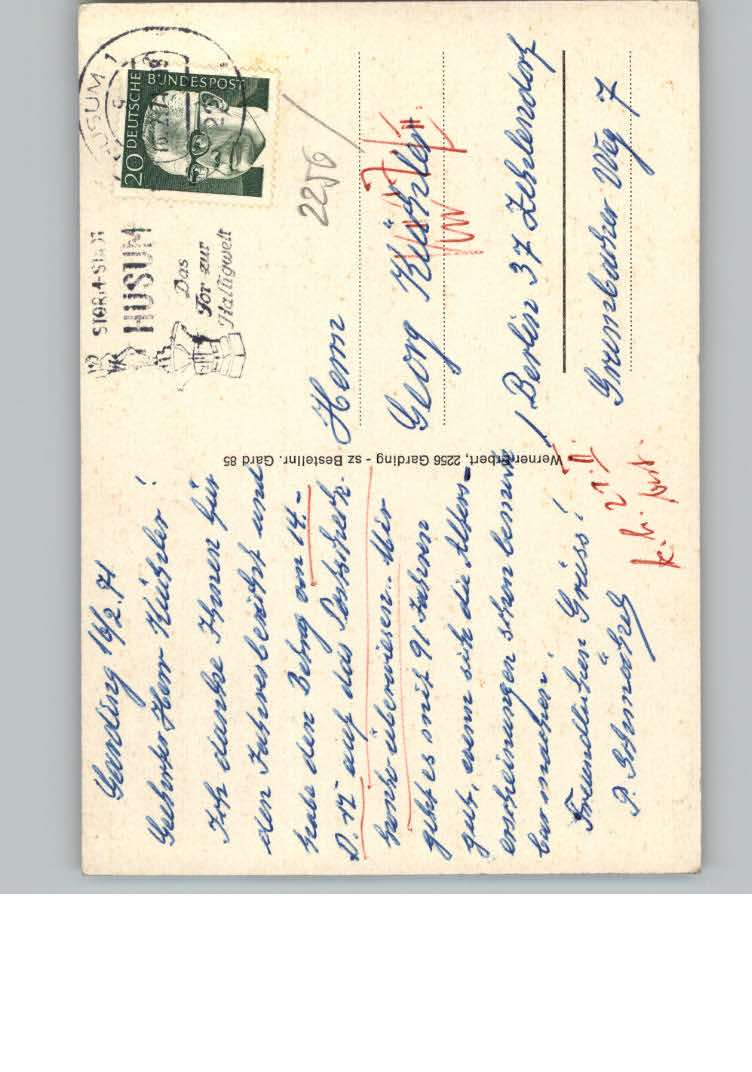 Garding 16/2.71
Geehrter Herr Küchler!
Ich danke Ihnen für
den Jahresbericht und
habe den Betrag von 14.-
D.M. auf das Postscheck-
konto überwiesen. Mir
geht es mit 91 Jahren
gut, wenn sich die Alters-
erscheinungen schon bemerk
bar machen.
Freundlichen Grüss!
P.
Werner Erbert, 2256 Garding - sz Bestellnr. Gard 85
STORM-STADT
HUSUM
Das
Tor zur
Halligwelt
HUSUM 1
20 DEUTSCHE BUNDESPOST
2256
Herrn
Georg Küchler
1 Berlin 37 Zehlendorf
Grumbacher Weg 7